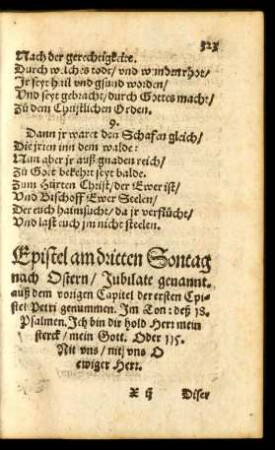 323
Nach der gerechtigkeite.
Durch welches todt/ vnd wunden rhot/
Ir seyt hail vnd gsund worden/
Vnd seyt gebracht/ durch Gottes macht/
Zů dem Christlichen Orden.
9.
Dann jr waret den Schafen gleich/
Die jrren inn dem walde:
Nun aber jr auß gnaden reich/
Zů Gott bekehrt seyt balde.
Zum Hürten Christ/ der Ewer ist/
Vnd Bischoff Ewer Seelen/
Der euch haimsucht/ da jr verflucht/
Vnd last euch jm nicht steelen.
Epistel am dritten Sontag
nach Ostern/ Jubilate genannt.
auß dem vorigen Capitel der ersten Epi-
stel Petri genummen. Im Ton: deß 18.
Psalmen. Ich bin dir hold Herr mein
sterck/ mein Gott. Oder 115.
Nit vns/ nit vns O
ewiger Herr.
X ij Diser